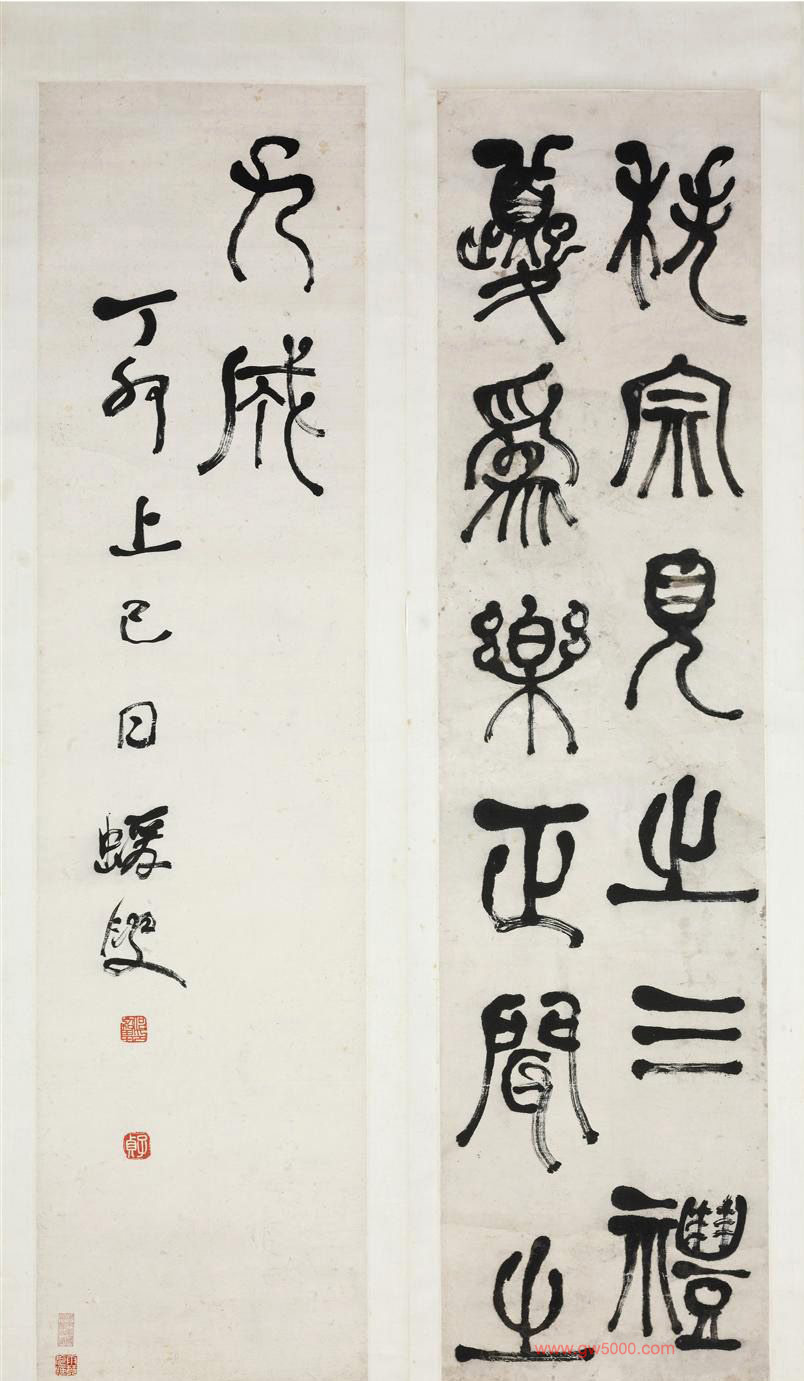 秩宗見之三禮
夔爲樂正聞之
九成
丁卯上巳日蝯叟
子貞
www.gw5000.com